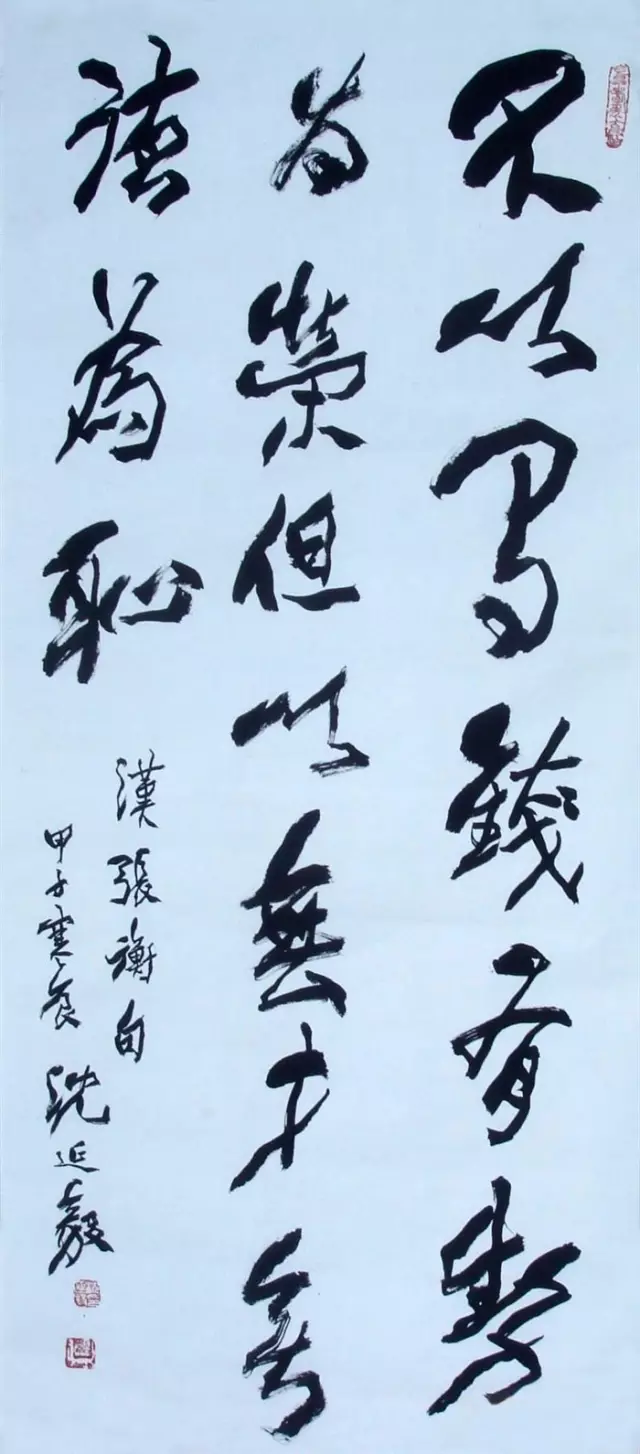 不以有錢有勢
为榮但以無才無
德為恥
漢張衡句
甲子寒食沈延毅